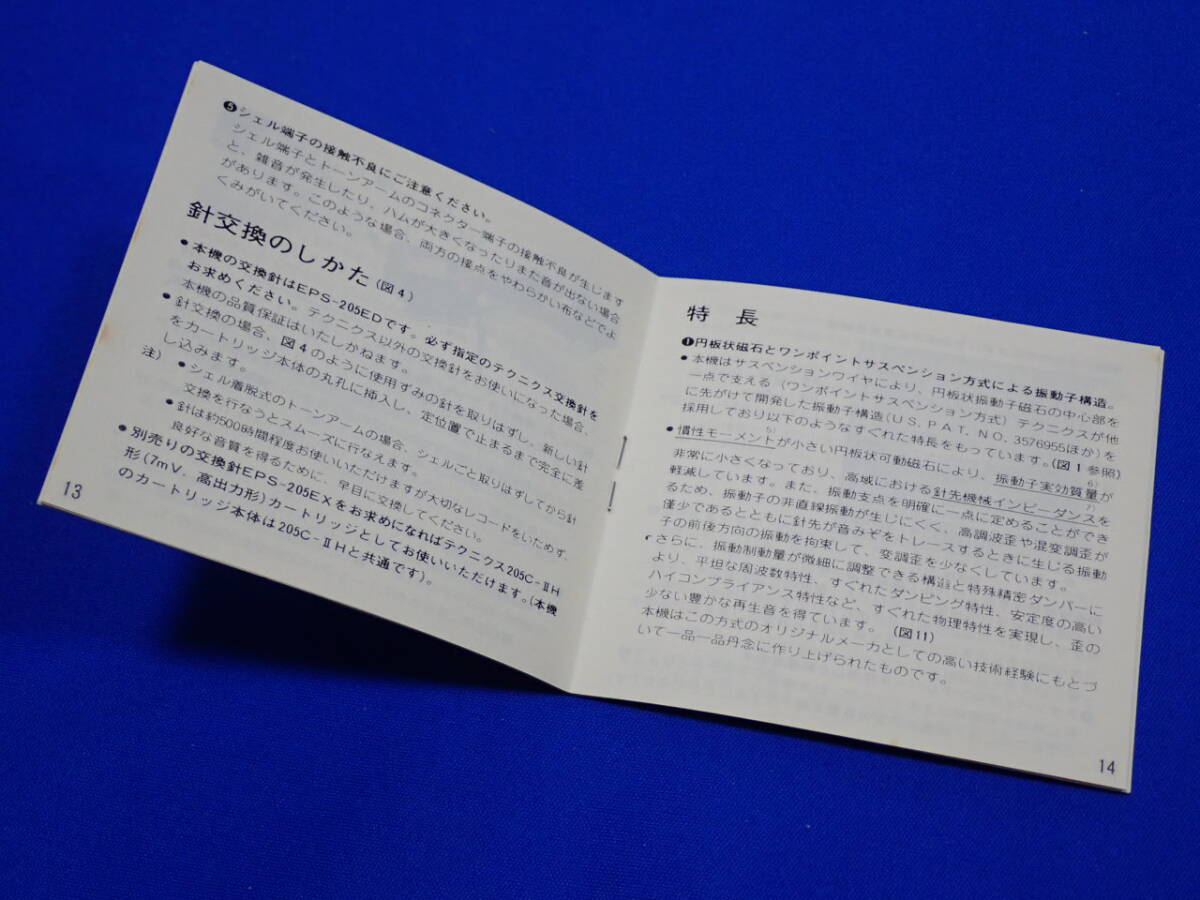 ❺シェル端子の接触不良にご注意ください。
シェル端子とトーンアームのコネクター端子の接触不良が生じます
と、雑音が発生したり、ハムが大きくなったりまた音が出ない場合
があります。このような場合、両方の接点をやわらかい布などでよ
くみがいてください。
針交換のしかた(図4)
●本機の交換針はEPS-205EDです。必ず指定のテクニクス交換針を
お求めください。テクニクス以外の交換針をお使いになった場合、
本機の品質保証はいたしかねます。
●針交換の場合、図4のように使用ずみの針を取りはずし、新しい針
をカートリッジ本体の丸孔に挿入し、定位置で止まるまで完全に差
し込みます。
注)●シェル着脱式のトーンアームの場合、シェルごと取りはずしてから針
交換を行なうとスムーズに行なえます。
●針は約500時間程度お使いいただけますが大切なレコードをいためず、
良好な音質を得るために、早目に交換してください。
●別売りの交換針EPS-205EXをお求めになればテクニクス205C-ⅡH
形(7mV、高出力形)カートリッジとしてお使いいただけます。(本機
のカートリッジ本体は205C-ⅡHと共通です)。
13
特長
❶円板状磁石とワンポイントサスペンション方式による振動子構造。
●本機はサスペンションワイヤにより、円板状振動子磁石の中心部を
一点で支える(ワンポイントサスペンション方式)テクニクスが他
に先がけて開発した振動子構造(U.S. PAT. NO. 3576955ほか)を
採用しており以下のようなすぐれた特長をもっています。(図1参照)
●慣性モーメント5)が小さい円板状可動磁石により、振動子実効質量6)が
非常に小さくなっており、高域における針先機械インピーダンス7)を
軽減しています。また、振動支点を明確に一点に定めることができ
るため、振動子の非直線振動が生じにくく、高調波歪や混変調歪が
僅少であるとともに針先が音みぞをトレースするときに生じる振動
子の前後方向の振動を拘束して、変調歪を少なくしています。
●さらに、振動制動量が微細に調整できる構造と特殊精密ダンパーに
より、平坦な周波数特性、すぐれたダンピング特性、安定度の高い
ハイコンプライアンス特性など、すぐれた物理特性を実現し、歪の
少ない豊かな再生音を得ています。(図11)
本機はこの方式のオリジナルメーカとしての高い技術経験にもとづ
いて一品一品丹念に作り上げられたものです。
14